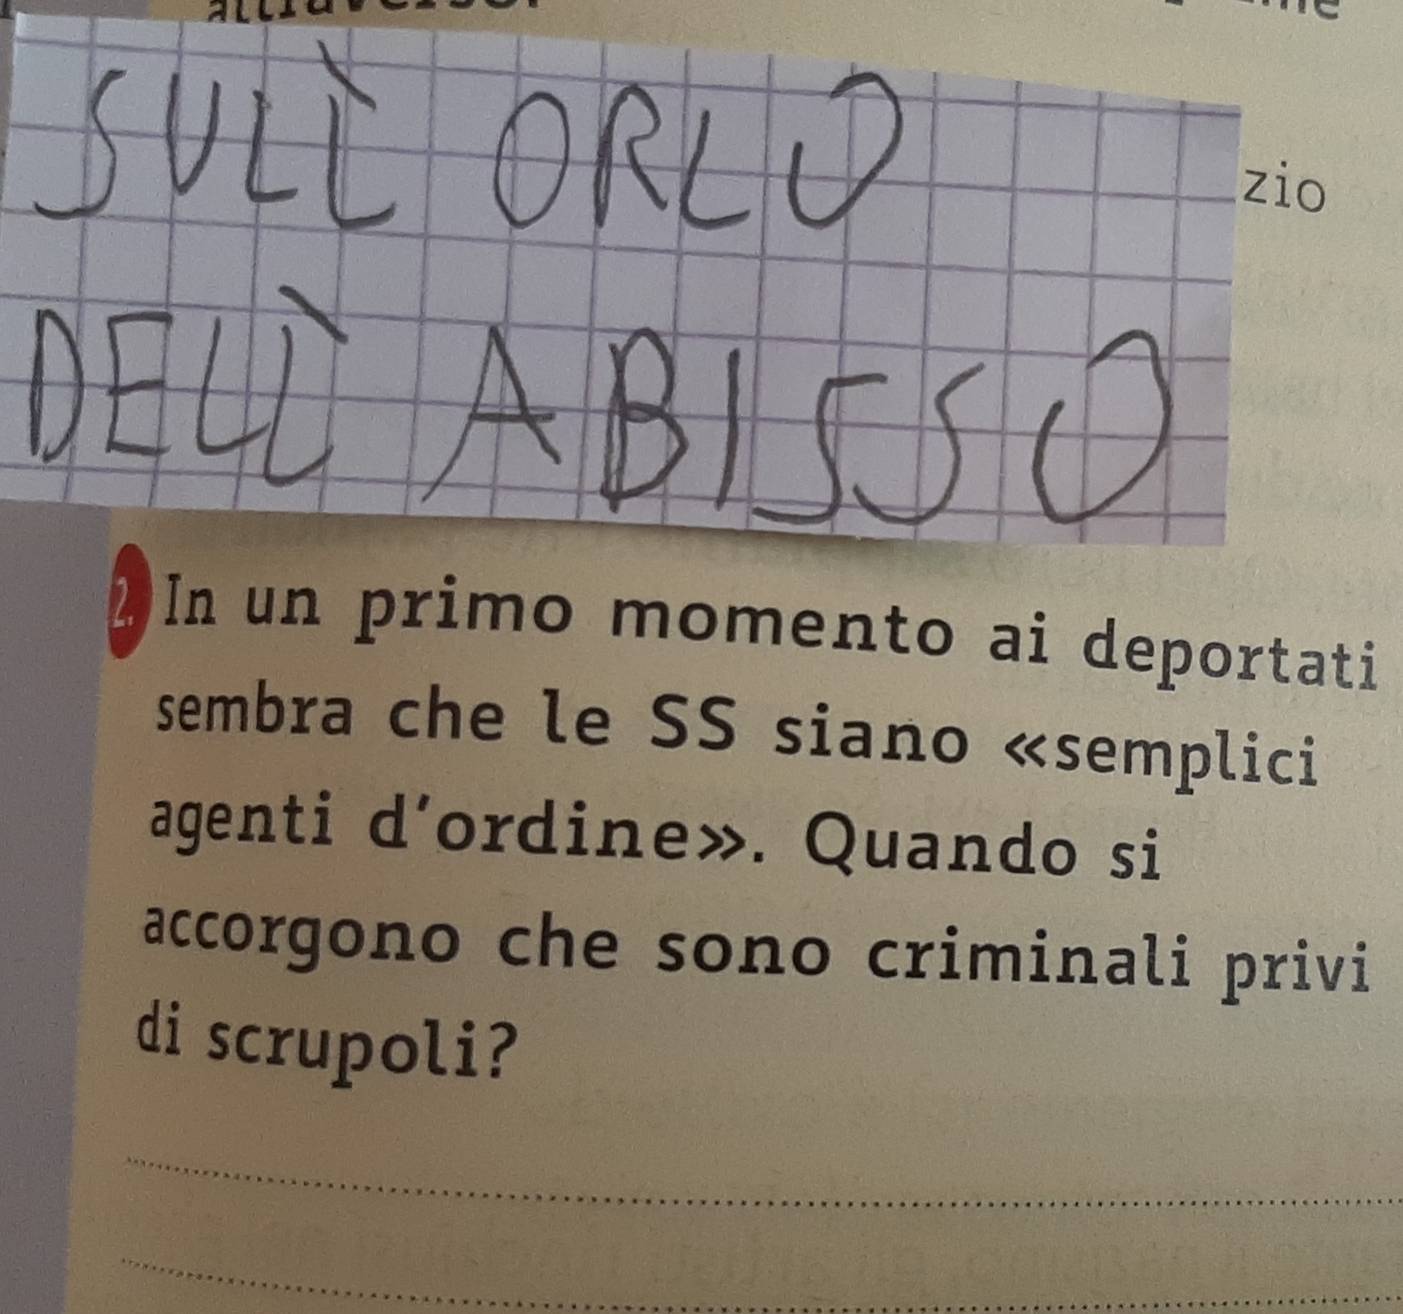 SULL' ORLO
zio
DELL' ABISSO
2. In un primo momento ai deportati
sembra che le SS siano «semplici
agenti d'ordine». Quando si
accorgono che sono criminali privi
di scrupoli?